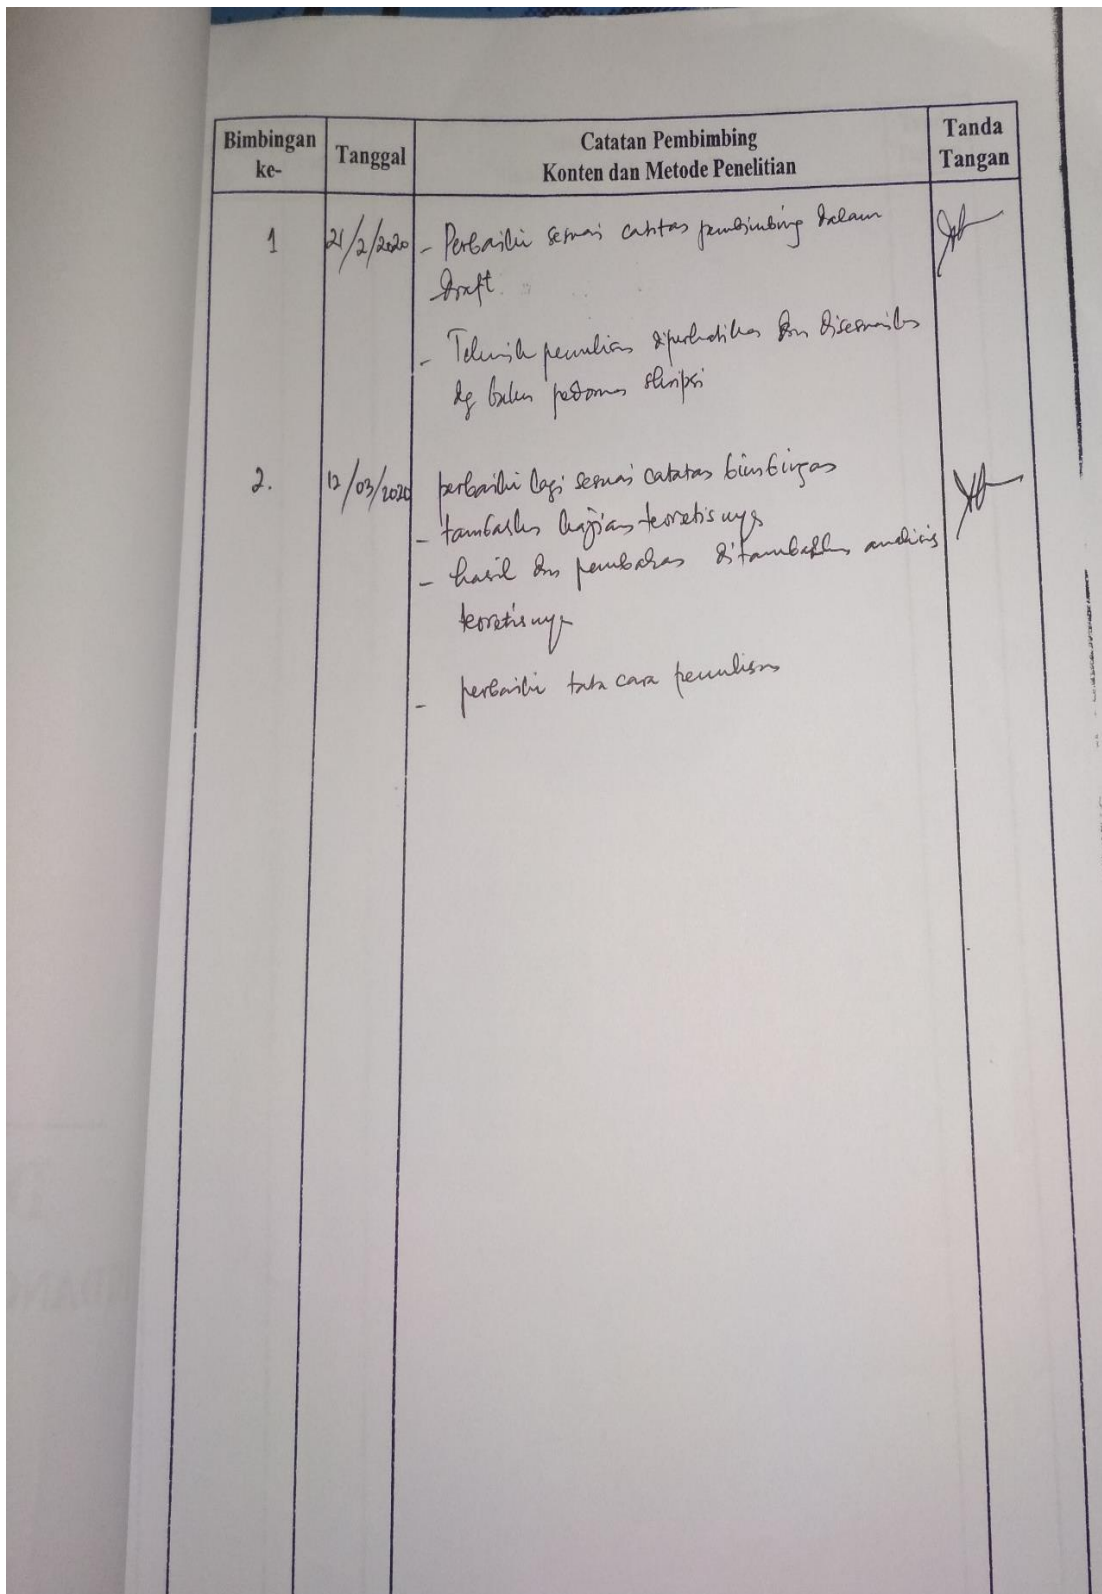 Bimbingan ke- Tanggal Catatan Pembimbing Konten dan Metode Penelitian Tanda Tangan
1 21/2/2020 - Perbaiki sesuai catatan pembimbing dalam
draft.
- Teknik penulisan diperhatikan dan disesuaikan
dg buku pedoman skripsi
2. 12/03/2020 perbaiki lagi sesuai catatan bimbingan
- tambahkan kajian teoretisnya
- hasil dan pembahasan ditambahkan analisis
teoretisnya
- perbaiki tata cara penulisan